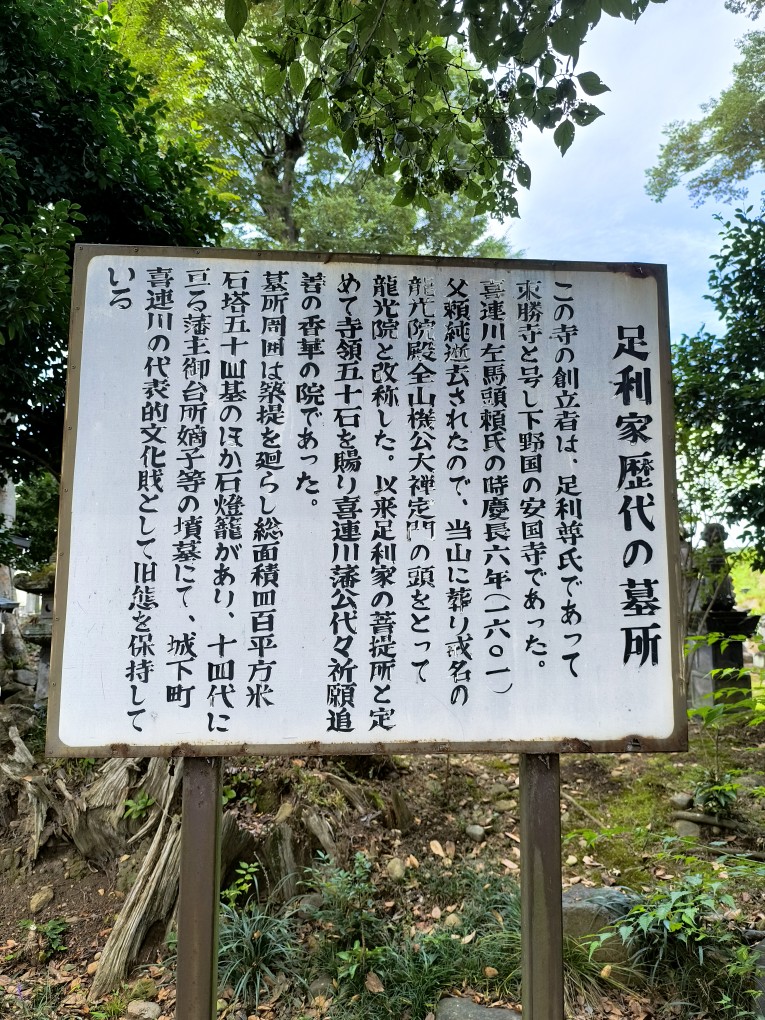 足利家歴代の墓所
この寺の創立者は、足利尊氏であって
東勝寺と号し下野国の安国寺であった。
喜連川左馬頭頼氏の時慶長六年(一六〇一)
父頼純逝去されたので、当山に葬り戒名の
龍光院殿全山機公大禅定門の頭をとって
龍光院と改称した。以来足利家の菩提所と定
めて寺領五十石を賜り喜連川藩公代々祈願追
善の香華の院であった。
墓所周囲は築提を廻らし総面積四百平方米
石塔五十四基のほか石燈籠があり、十四代に
亘る藩主御台所嫡子等の墳墓にて、城下町
喜連川の代表的文化財として旧態を保持して
いる